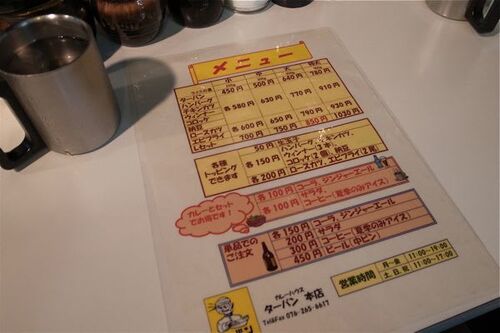 メニュー
小 中 大 特大
ターバン 450円 500円 640円 780円
ハンバーグ
チキンカツ
ウィンナー 各580円 630円 770円 910円
コロッケ
納豆
ロースカツ 各600円 650円 790円 930円
エビフライ
Lセット 700円 750円 850円 1030円
各種トッピングできます
50円 生玉子
各150円 ハンバーグ、チキンカツ、
ウィンナー(3本)、納豆
コロッケ(2個)
各200円 ロースカツ、エビフライ(2尾)
カレーとセットでお得です!
各100円 コーラ、ジンジャーエール
サラダ
各100円 コーヒー(夏季のみアイス)
単品でのご注文
各150円 コーラ、ジンジャーエール
200円 サラダ
300円 コーヒー(夏季のみアイス)
450円 ビール(中ビン)
営業時間
月~金 11:00~19:00
土、日、祝 11:00~17:00
カレーハウス
ターバン 本店
Tel&Fax 076-265-6617